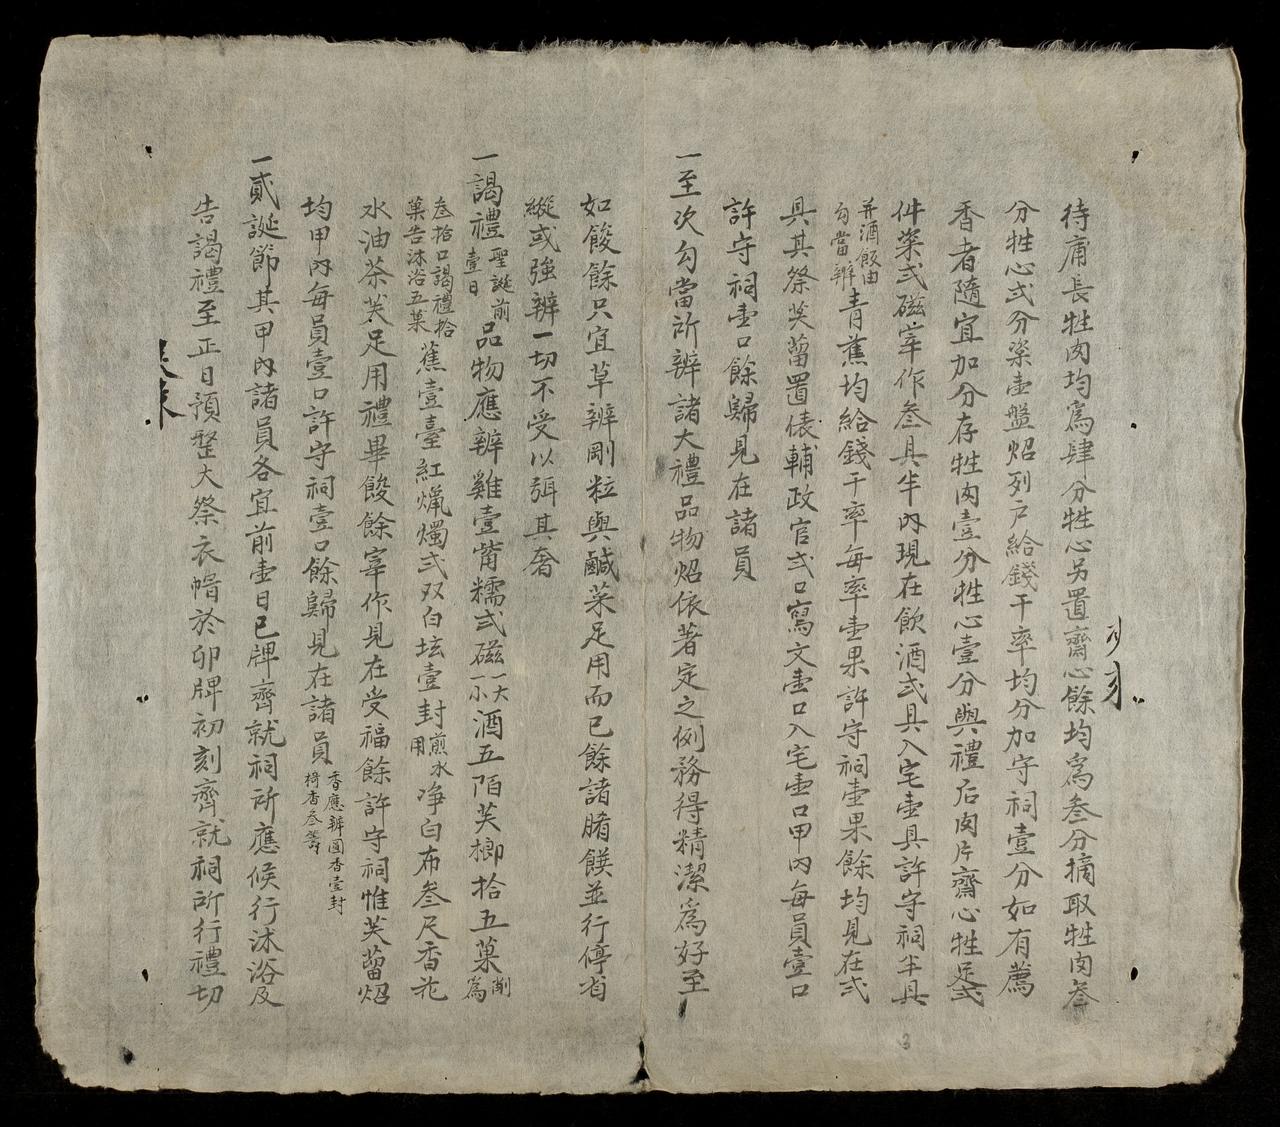 待庯長牲肉均爲肆分牲心另置齋心餘均爲叁分摘取牲肉叁
分牲心弍分粢壺盤炤列戶給錢干率均分加守祠壹分如有薦
香者隨宜加分存牲肉壹分牲心壹分與禮后肉片齋心牲足弍
件粢弍磁宰作叁具半內現在飲酒弍具入宅壺具許守祠半具
并酒飯由
勾當辨
青蕉均給錢干率每率壺果許守祠壺果餘均見在弍
具其祭芙蒥置俵輔政官弍口寫文壺口入宅壺口甲內每員壹口
許守祠壺口餘歸見在諸員
一至次勾當所辨諸大禮品物炤依著定之例務得精潔爲好至
如餕餘只宜草辨剛粒與鹹菜足用而已餘諸脯饌並行停省
縱或強辨一切不受以弭其奢
一謁禮
聖誕前
壹日
品物應辨雞壹觜糯弍磁
一大
一小
酒五陌芙榔拾五菓
削
爲
叁拾口謁禮拾
菓告沐浴五菓
蕉壹臺紅爉燭弍双白坛壹封
煎水
用
净白布叁尺香花
水油茶芙足用禮畢餕餘宰作見在受福餘許守祠惟芙蒥炤
均甲內每員壹口許守祠壹口餘歸見在諸員
香應辨圓香壹封
椅香叁籌
一貳誕節其甲內諸員各宜前壺日巳牌齊就祠所應候行沐浴及
告謁禮至正日預整大祭衣帽於卯牌初刻齊就祠所行禮切